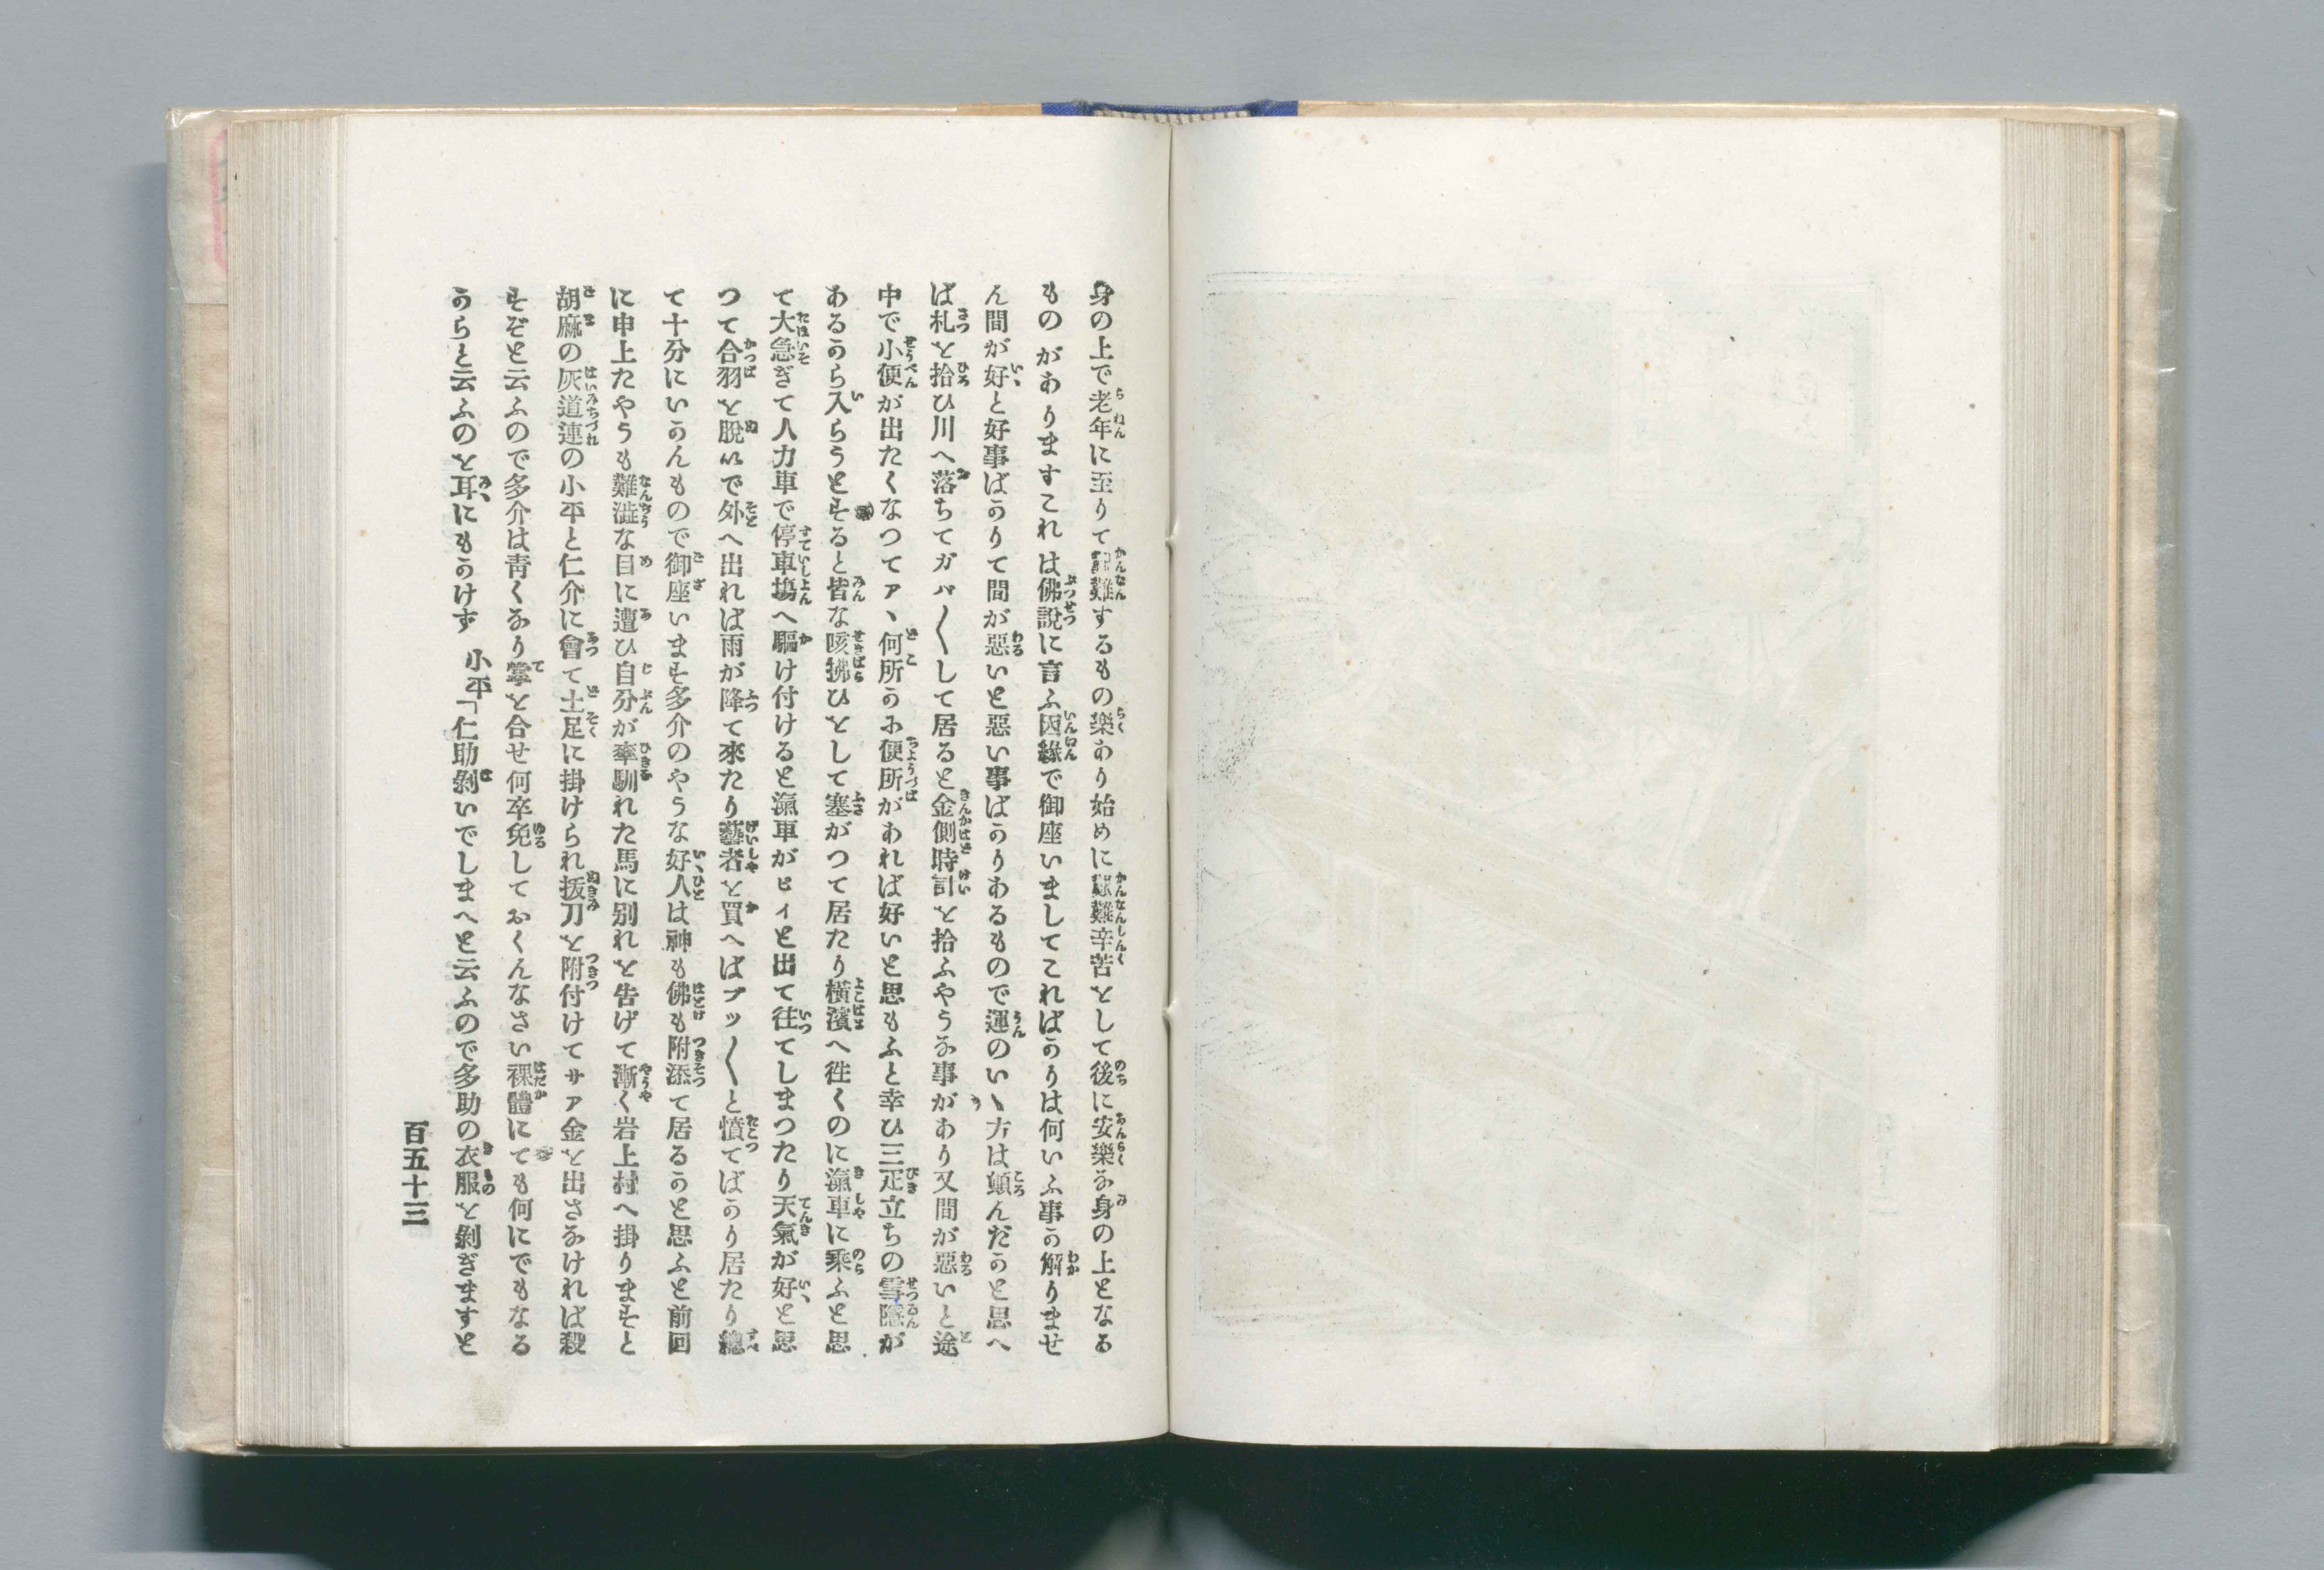 身の上で老年に至りて艱難するもの樂あり始めに艱難辛苦として後に安樂な身の上となる
ものがありますこれは佛說に言ふ因緣で御座いましてこればかりは何いふ事か解りませ
ん間が好と好事ばかりて間が惡いと惡い事ばかりあるもので運のいゝ方は顛んだかと思へ
ば札と拾ひ川へ落ちてガバ〱して居ると金側時計と拾ふやうな事があり又間が惡いと途
中で小便が出たくなつてアヽ何所かに便所があれば好いと思もふと幸ひ三疋立ちの雪隱が
あるから入らうとすると皆な咳拂ひとして塞がつて居たり橫濱へ徃くのに滊車に乘ふと思
て大急ぎて人力車で停車塲へ驅け付けると滊車がピイと出て徃てしまつたり天氣が好と思
つて合羽と脫いで外へ出れば雨が降て來たり藝者と買へばブツ〱と憤てばかり居たり總
て十分にいかんもので御座います多介のやうな好人は神も佛も附添て居るかと思ふと前回
に申上たやうも難澁な目に遭ひ自分が牽馴れた馬に別れと告げて漸く岩上村へ掛りますと
胡麻の灰道連の小平と仁介に會て土足に掛けられ拔刀と附付けてサア金と出さなければ殺
すぞと云ふので多介は靑くなり掌と合せ何卒免しておくんなさい裸體にても何にでもなる
からと云ふのと耳にもかけず　小平「仁助剝いでしまへと云ふので多助の衣服と剝ぎますと
百五十三